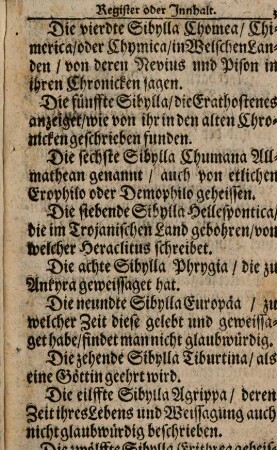 Register oder Innhalt.
Die vierdte Sibylla Chomea/ Chi-
merica/oder Chymica/in Welschen Lan-
den / von deren Nevius und Pison in
ihren Chronicken sagen.
Die fünffte Sibylla/die Erathostenes
anzeiget/wie von ihr in den alten Chro-
nicken geschrieben funden.
Die sechste Sibylla Chumana All-
mathean genannt / auch von etlichen
Erophilo oder Demophilo geheissen.
Die siebende Sibylla Hellespontica/
die im Trojanischen Land gebohren/von
welcher Heraclitus schreibet.
Die achte Sibylla Phrygia / die zu
Ankyra geweissaget hat.
Die neundte Sibylla Europäa / zu
welcher Zeit diese gelebt und geweissa-
get habe/findet man nicht glaubwürdig.
Die zehende Sibylla Tiburtina/ als
eine Göttin geehrt wird.
Die eilffte Sibylla Agrippa / deren
Zeit ihres Lebens und Weissagung auch
nicht glaubwürdig beschrieben.
Die zwölffte Sibylla